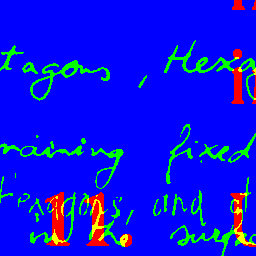 tagons, Hexa
maining fixed
texagons, and ot
11.
in th surfac